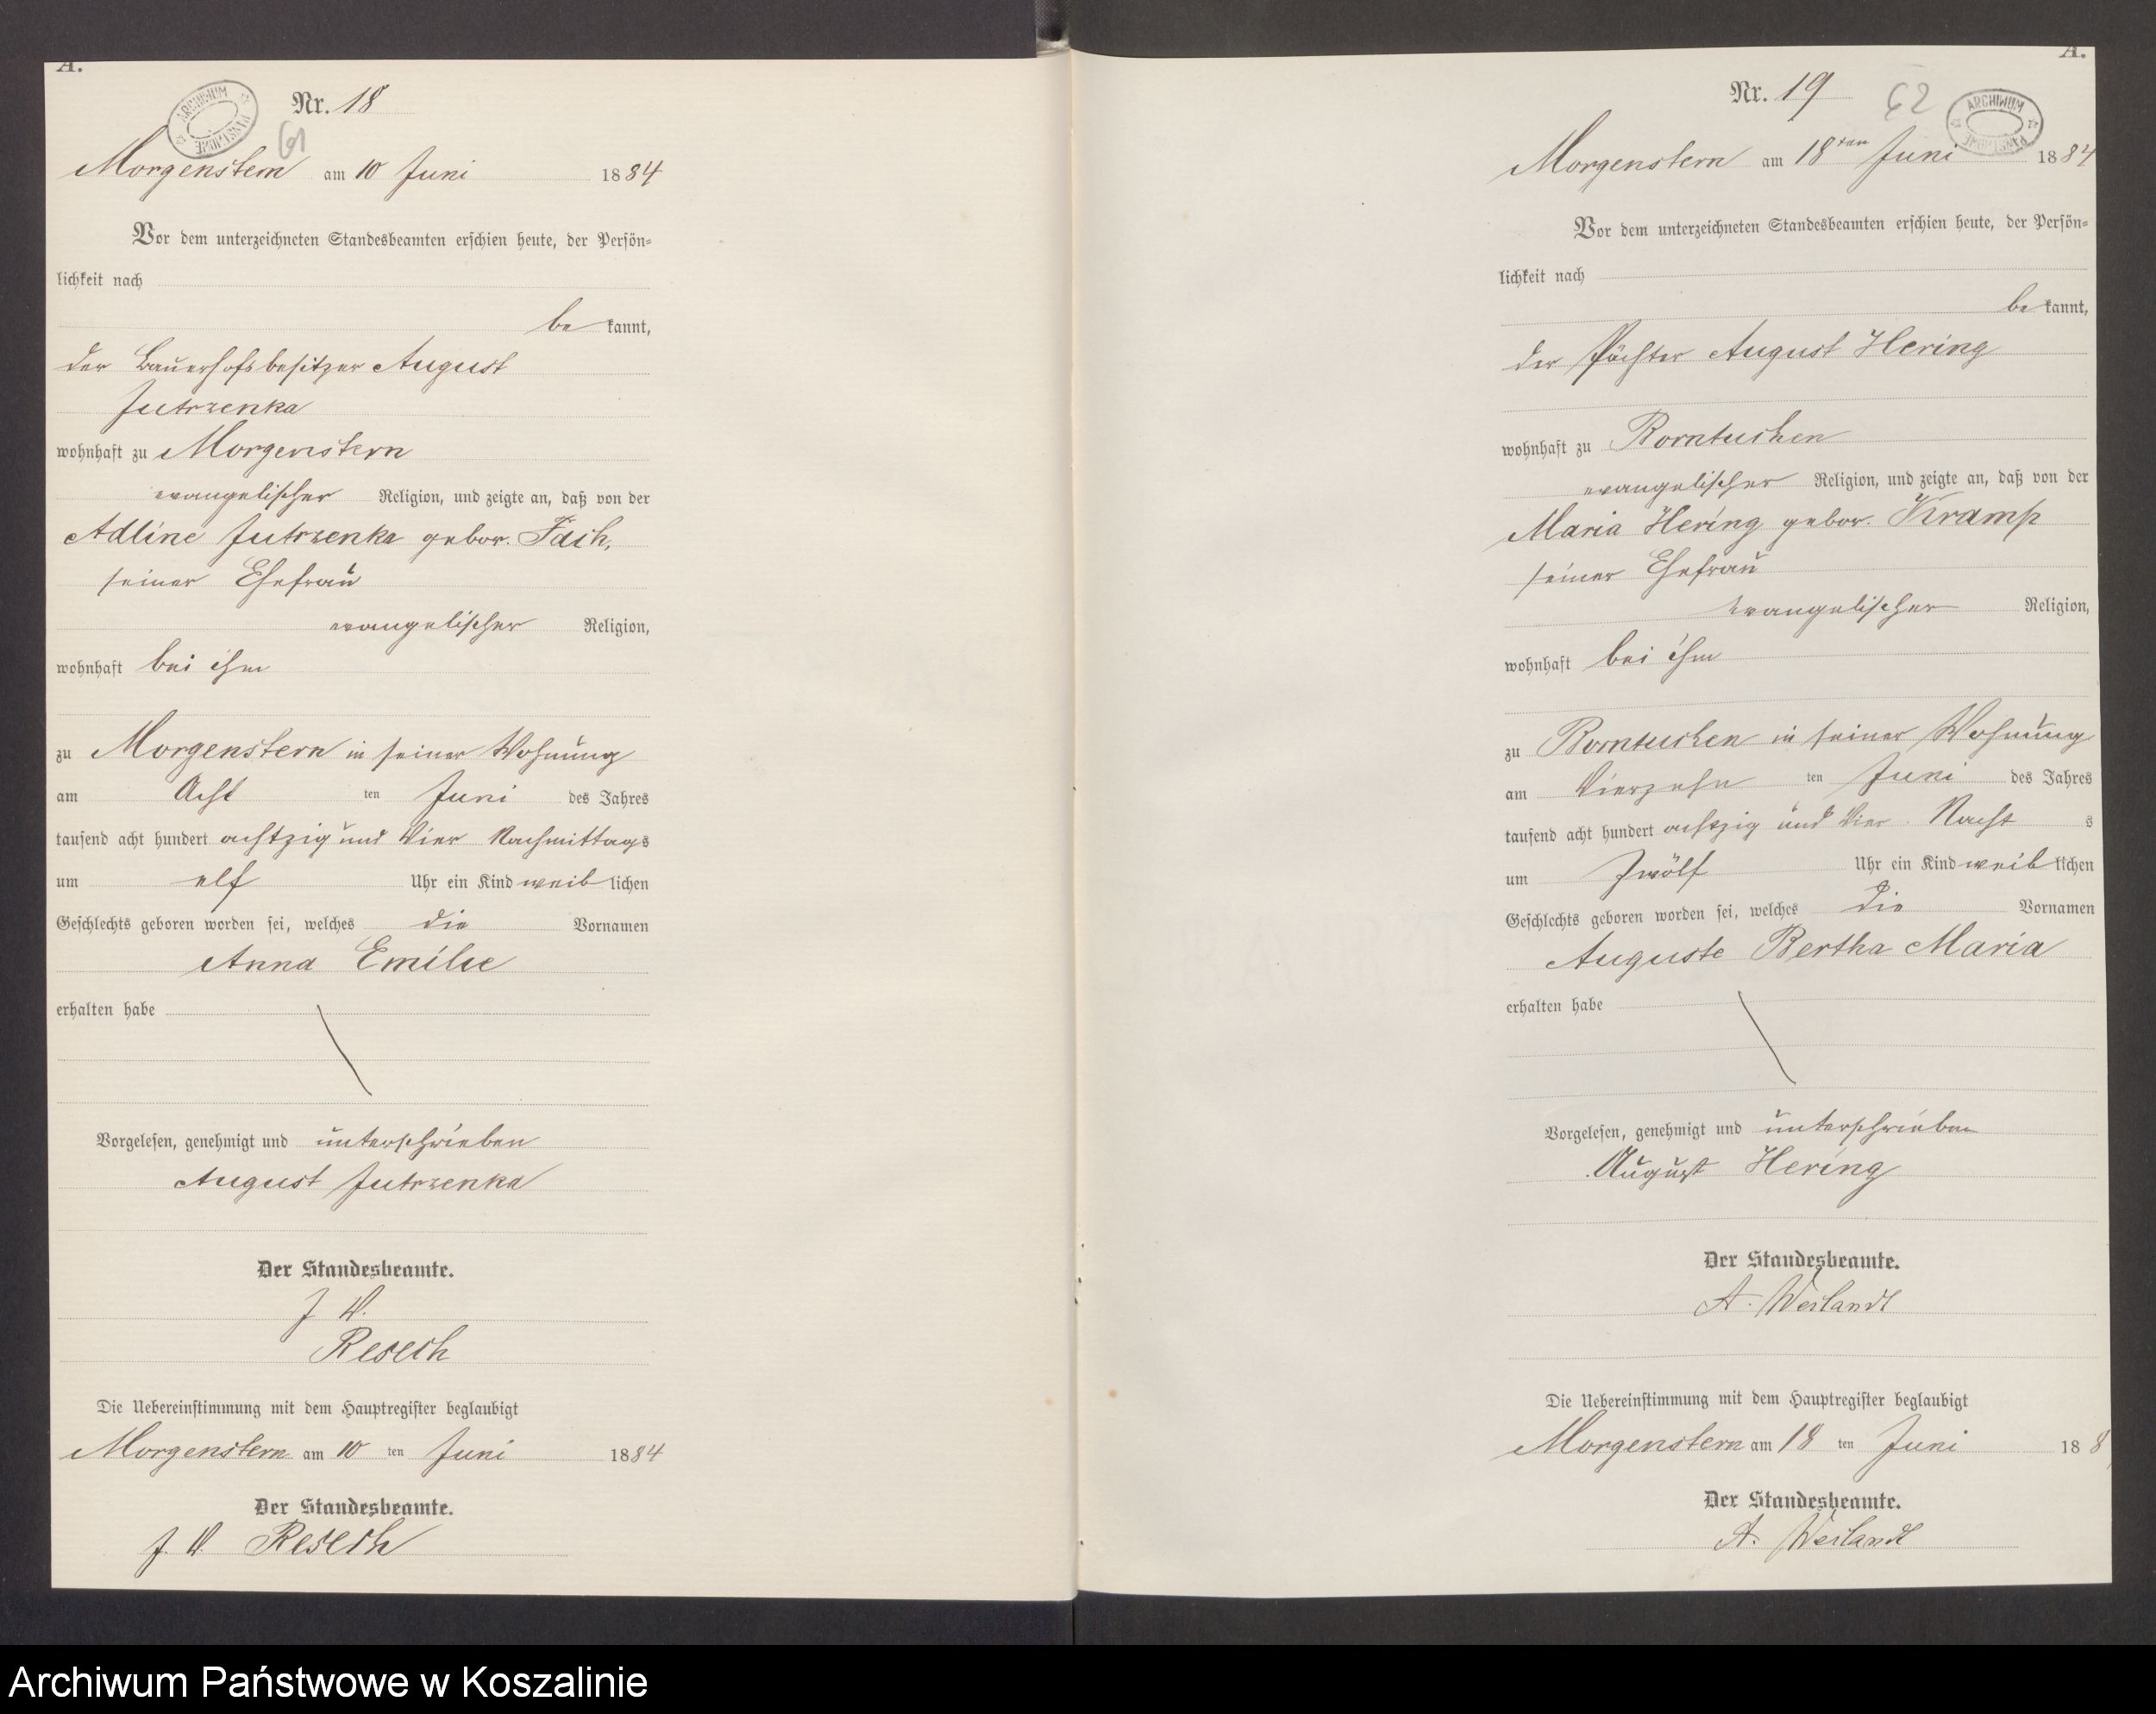 A.
Nr. 18
ARCHIWUM PAŃSTWOWE
61
Morgenstern am 10 Juni 1884
Vor dem unterzeichneten Standesbeamten erschien heute, der Persön=
lichkeit nach
be kannt,
der Bauerhofsbesitzer August
Jutrzenka
wohnhaft zu Morgenstern
evangelischer Religion, und zeigte an, daß von der
Adline Jutrzenka gebor.
seiner Ehefrau
evangelischer Religion,
wohnhaft bei ihm
zu Morgenstern in seiner Wohnung
am Acht ten Juni des Jahres
tausend acht hundert achtzig und Vier Nachmittags
um elf Uhr ein Kind weib lichen
Geschlechts geboren worden sei, welches die Vornamen
Anna Emilie
erhalten habe
Vorgelesen, genehmigt und unterschrieben
August Jutrzenka
Der Standesbeamte.
J. V.
Resech
Die Uebereinstimmung mit dem Hauptregister beglaubigt
Morgenstern am 10 ten Juni 1884
Der Standesbeamte.
J. V. Resech
A.
Nr. 19
62
ARCHIWUM PAŃSTWOWE
Morgenstern am 18ten Juni 1884
Vor dem unterzeichneten Standesbeamten erschien heute, der Persön=
lichkeit nach
be kannt,
der Pächter August Hering
wohnhaft zu Borntuchen
evangelischer Religion, und zeigte an, daß von der
Maria Hering gebor. Kramp
seiner Ehefrau
evangelischer Religion,
wohnhaft bei ihm
zu Borntuchen in seiner Wohnung
am Vierzehn ten Juni des Jahres
tausend acht hundert achtzig und Vier Nacht s
um Zwölf Uhr ein Kind weib lichen
Geschlechts geboren worden sei, welches die Vornamen
Auguste Bertha Maria
erhalten habe
Vorgelesen, genehmigt und unterschrieben
August Hering
Der Standesbeamte.
A. Weilandt
Die Uebereinstimmung mit dem Hauptregister beglaubigt
Morgenstern am 18 ten Juni 188
Der Standesbeamte.
A. Weilandt
Archiwum Państwowe w Koszalinie